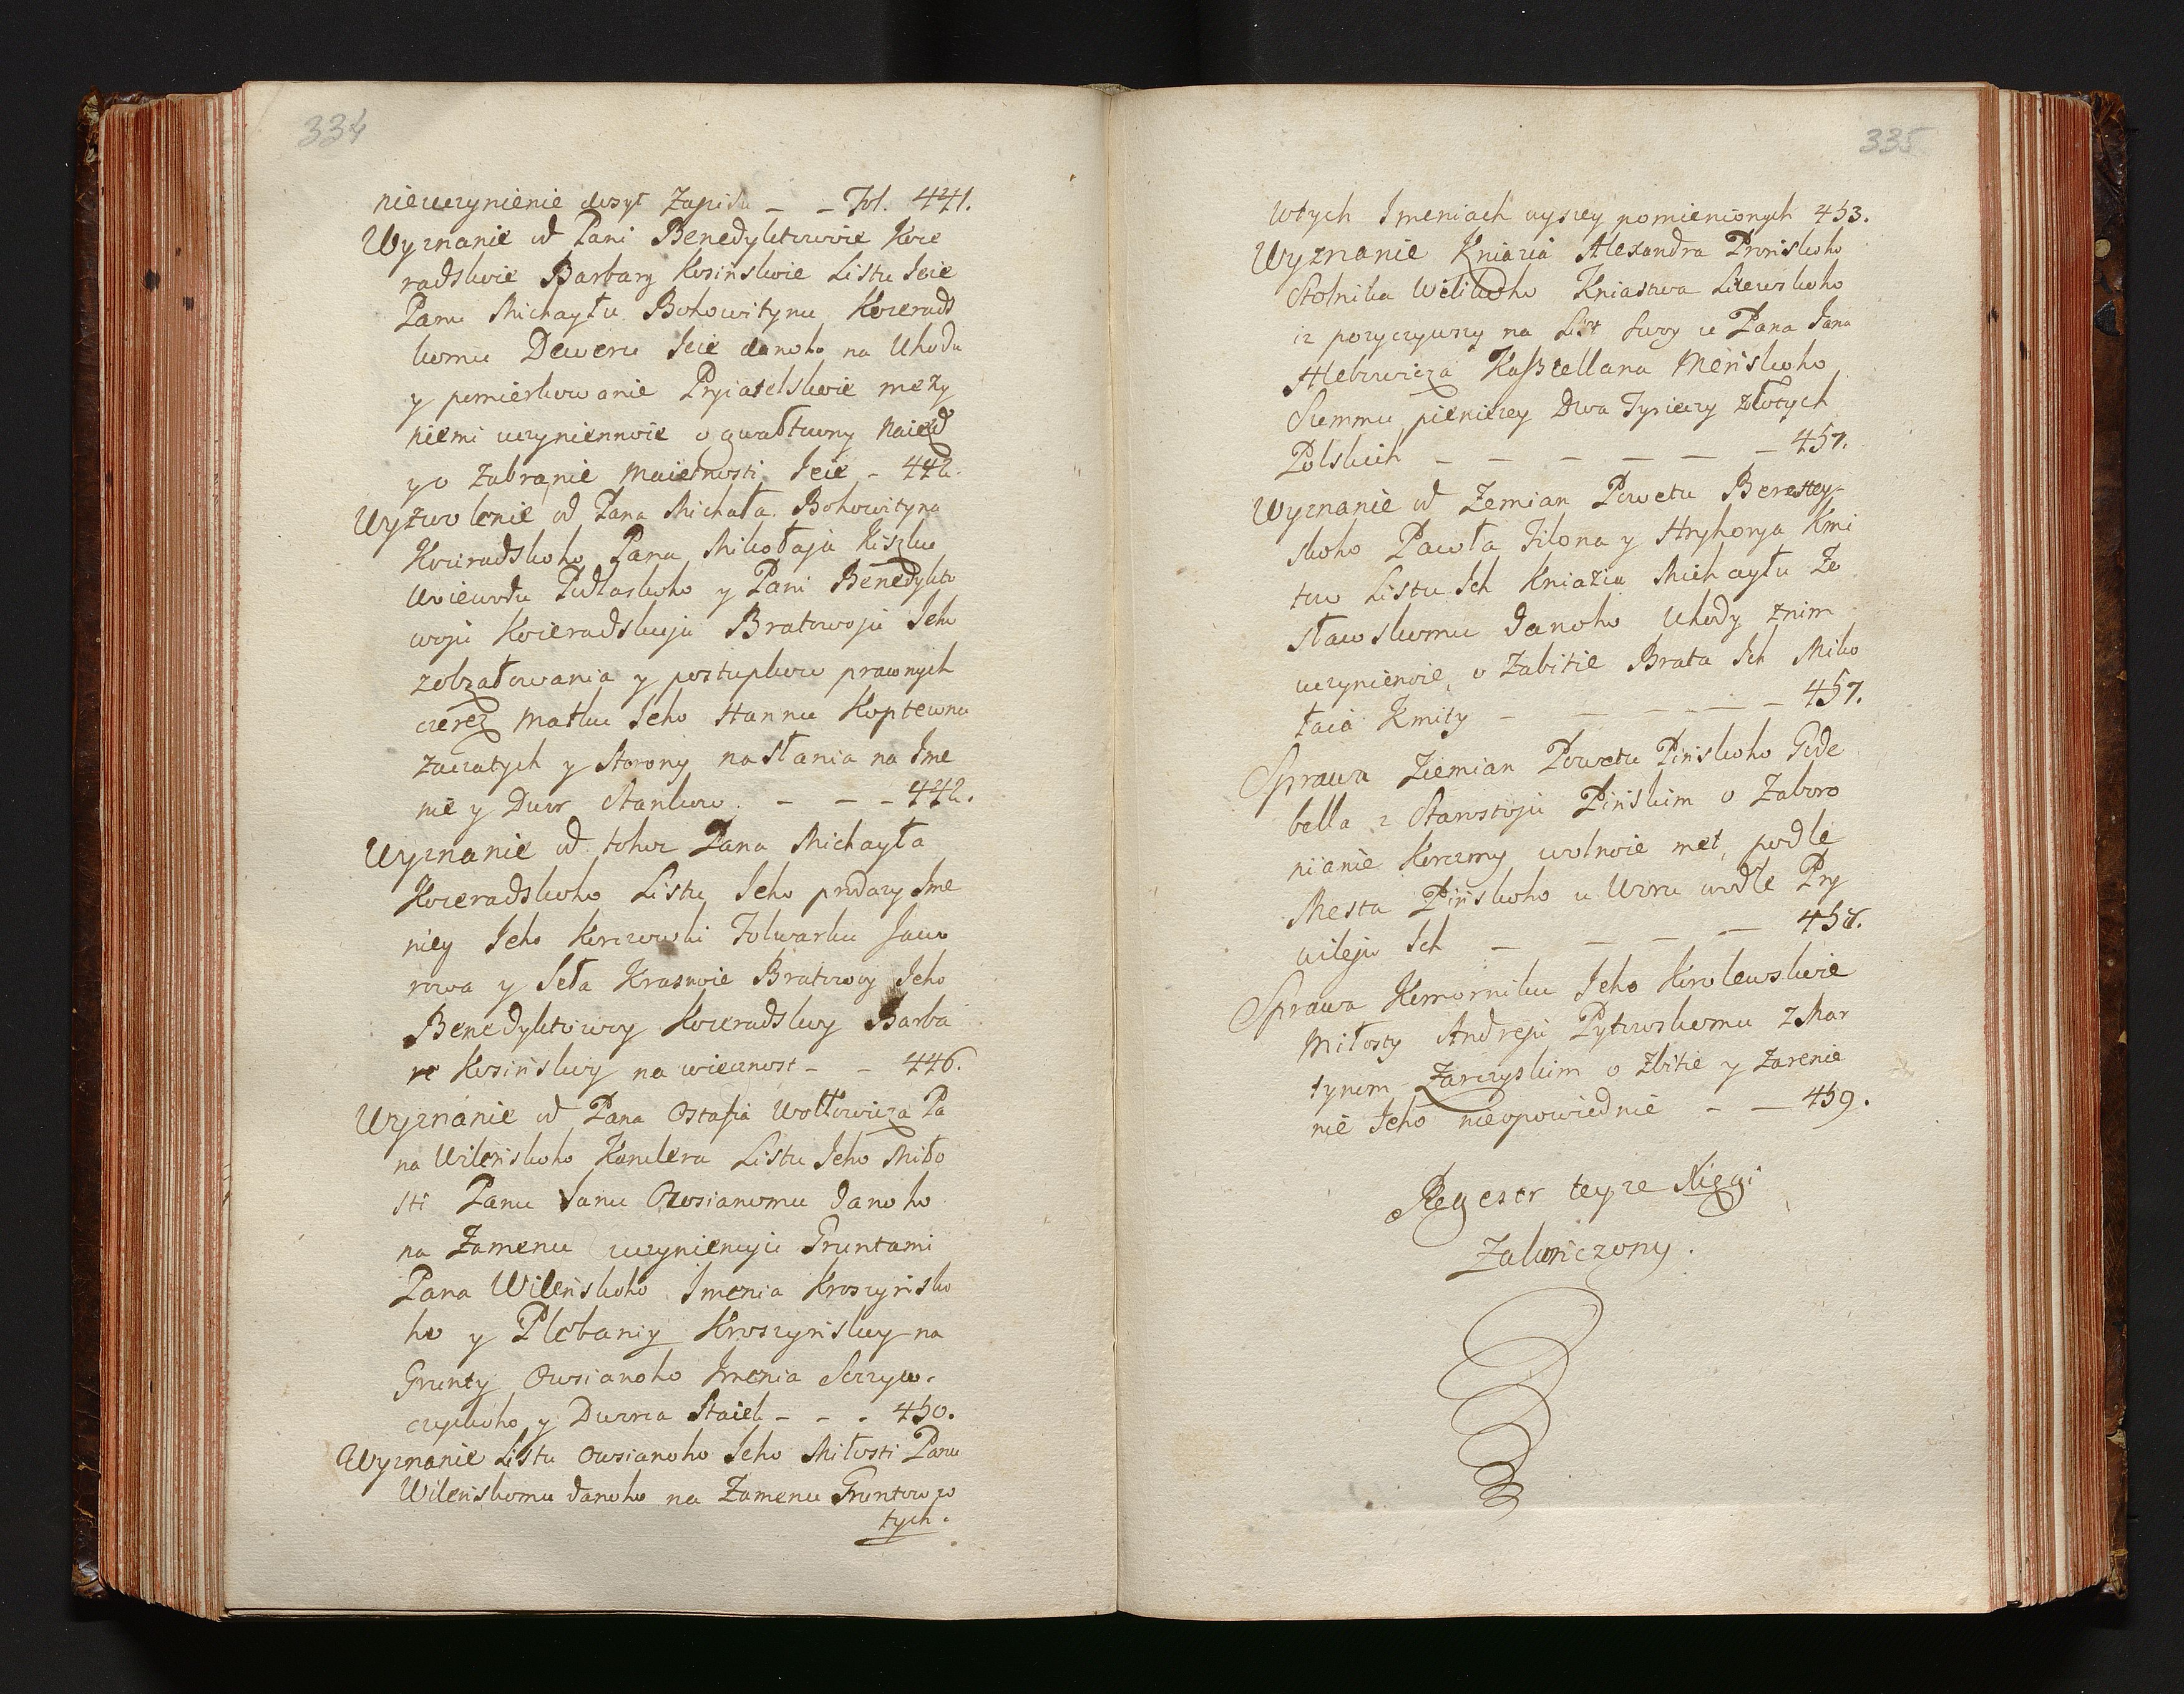 334
nieuczynienie dosyt Zapisu _ _ Fol. 441.
Wyznanie od Pani Benedyktowoie Koze
radskoie Barbary Kosinskoie Listu Jeie
Panu Michayłu Bohowitynu Kozerads
komu Deweru Jeie danoho na Uhodu
y pomierkowanie Pryiatelskoie meży
niemi uczyniennoie o gwałtowny Naiezd
y o Zabranie Maietnosti Jeie - 442.
Wyzwolenie od Pana Michała Bohowityna
Kozeradskoho Pana Mikołaja Kiszku
Woiewodu Podlaskoho y Pani Benedykto
woju Kozeradskuju Bratowoju Jeho
zobżałowania y postupkow prawnych
czerez Matku Jeho Hannu Koptewnu
Zaczatych y Storony nasłania na Ime
nie y Dwor Stankow. - - - 442.
Wyznanie od tohoz Pana Michayła
Kozeradskoho Listu Jeho prodazy Ime
niey Jeho Korczowki Folwarku Jawo
rowa y Seła Krasnoie Bratowoy Jeho
Benedyktowoy Kozeradskoy Barba
re Kosinskoy na wiecznost - - 446.
Wyznanie od Pana Ostafia Wołłowicza Pa
na Wilenskoho Kanclera Listu Jeho Miło
sti Panu Janu Owsianomu danoho
na Zamenu uczynienuju Gruntami
Pana Wilenskoho Imenia Kroszynsko
ho y Plebaniy Kroszynskoy na
Grunty Owsianoho Imenia Serzyw.
czynskoho y Dworca Staiek - - . 450.
Wyznanie Listu Owsianoho Jeho Miłosti Panu
Wilenskomu danoho na Zamenu Gruntow w
tych.
335
wtych Imeniach wyszey pomienionych 453.
Wyznanie Kniazia Alexandra Pronskoho
Stolnika Welikoho Kniastwa Litewskoho
iz pozyczywszy na List Swoy u Pana Jana
Hlebowicza Kasztellana Menskoho
Summu pieniezey Dwa Tysieczy Złotych
Polskich _ _ _ _ _ _ 457.
Wyznanie od Zemian Powetu Berestey-
skoho Pawła Filona y Hryhorya Kmi
tow Listu Ich Kniaziu Michayłu Za
sławskomu danoho Uhody znim
uczynienoie, o Zabitie Brata Ich Miko
łaia Kmity - - - - - 457.
Sprawa Ziemian Powetu Pinskoho Gede
bella z Starostoju Pinskim o Zaboro
nianie Korczmy wolnoie met, podle
Mesta Pinskoho u Dworu wodle Pry
wileju Ich - - - - 458.
Sprawa Komorniku Jeho Korolewskoie
Miłosty Andreju Pytowskomu z Mar
tynom Zarczyskim o Zbitie y Zarenie
nie Jeho nieopowiednie - - 459.
Regestr teyze Xięgi
Zakończony.